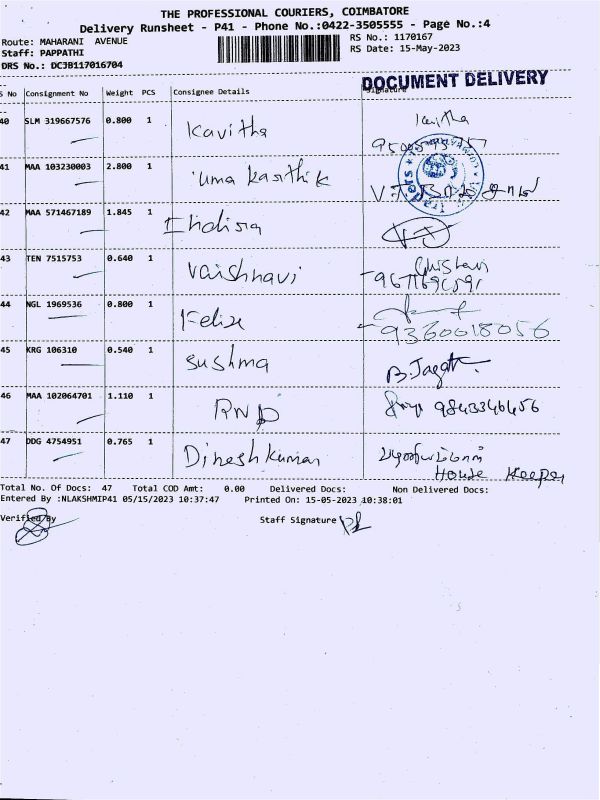 THE PROFESSIONAL COURIERS, COIMBATORE
Delivery Runsheet - P41 - Phone No.:0422-3505555 - Page No.:4
Route: MAHARANI AVENUE
RS No.: 1170167
Staff: PAPPATHI
RS Date: 15-May-2023
DRS No.: DCJB117016704
DOCUMENT DELIVERY
S No Consignment No Weight PCS Consignee Details Signature
40 SLM 319667576 0.800 1 Kavitha Kavitha
41 MAA 103230003 2.800 1 uma karthik
42 MAA 571467189 1.845 1 Indira
43 TEN 7515753 0.640 1 Vaishnavi
44 NGL 1969536 0.800 1 Felix 9360018056
45 KRG 106310 0.540 1 Sushma B.Jagath
46 MAA 102064701 1.110 1 RND 9843346456
47 DDG 4754951 0.765 1 Dinesh kumar
House Keeper
Total No. Of Docs: 47 Total COD Amt: 0.00 Delivered Docs: Non Delivered Docs:
Entered By :NLAKSHMIP41 05/15/2023 10:37:47 Printed On: 15-05-2023 10:38:01
Verified By Staff Signature